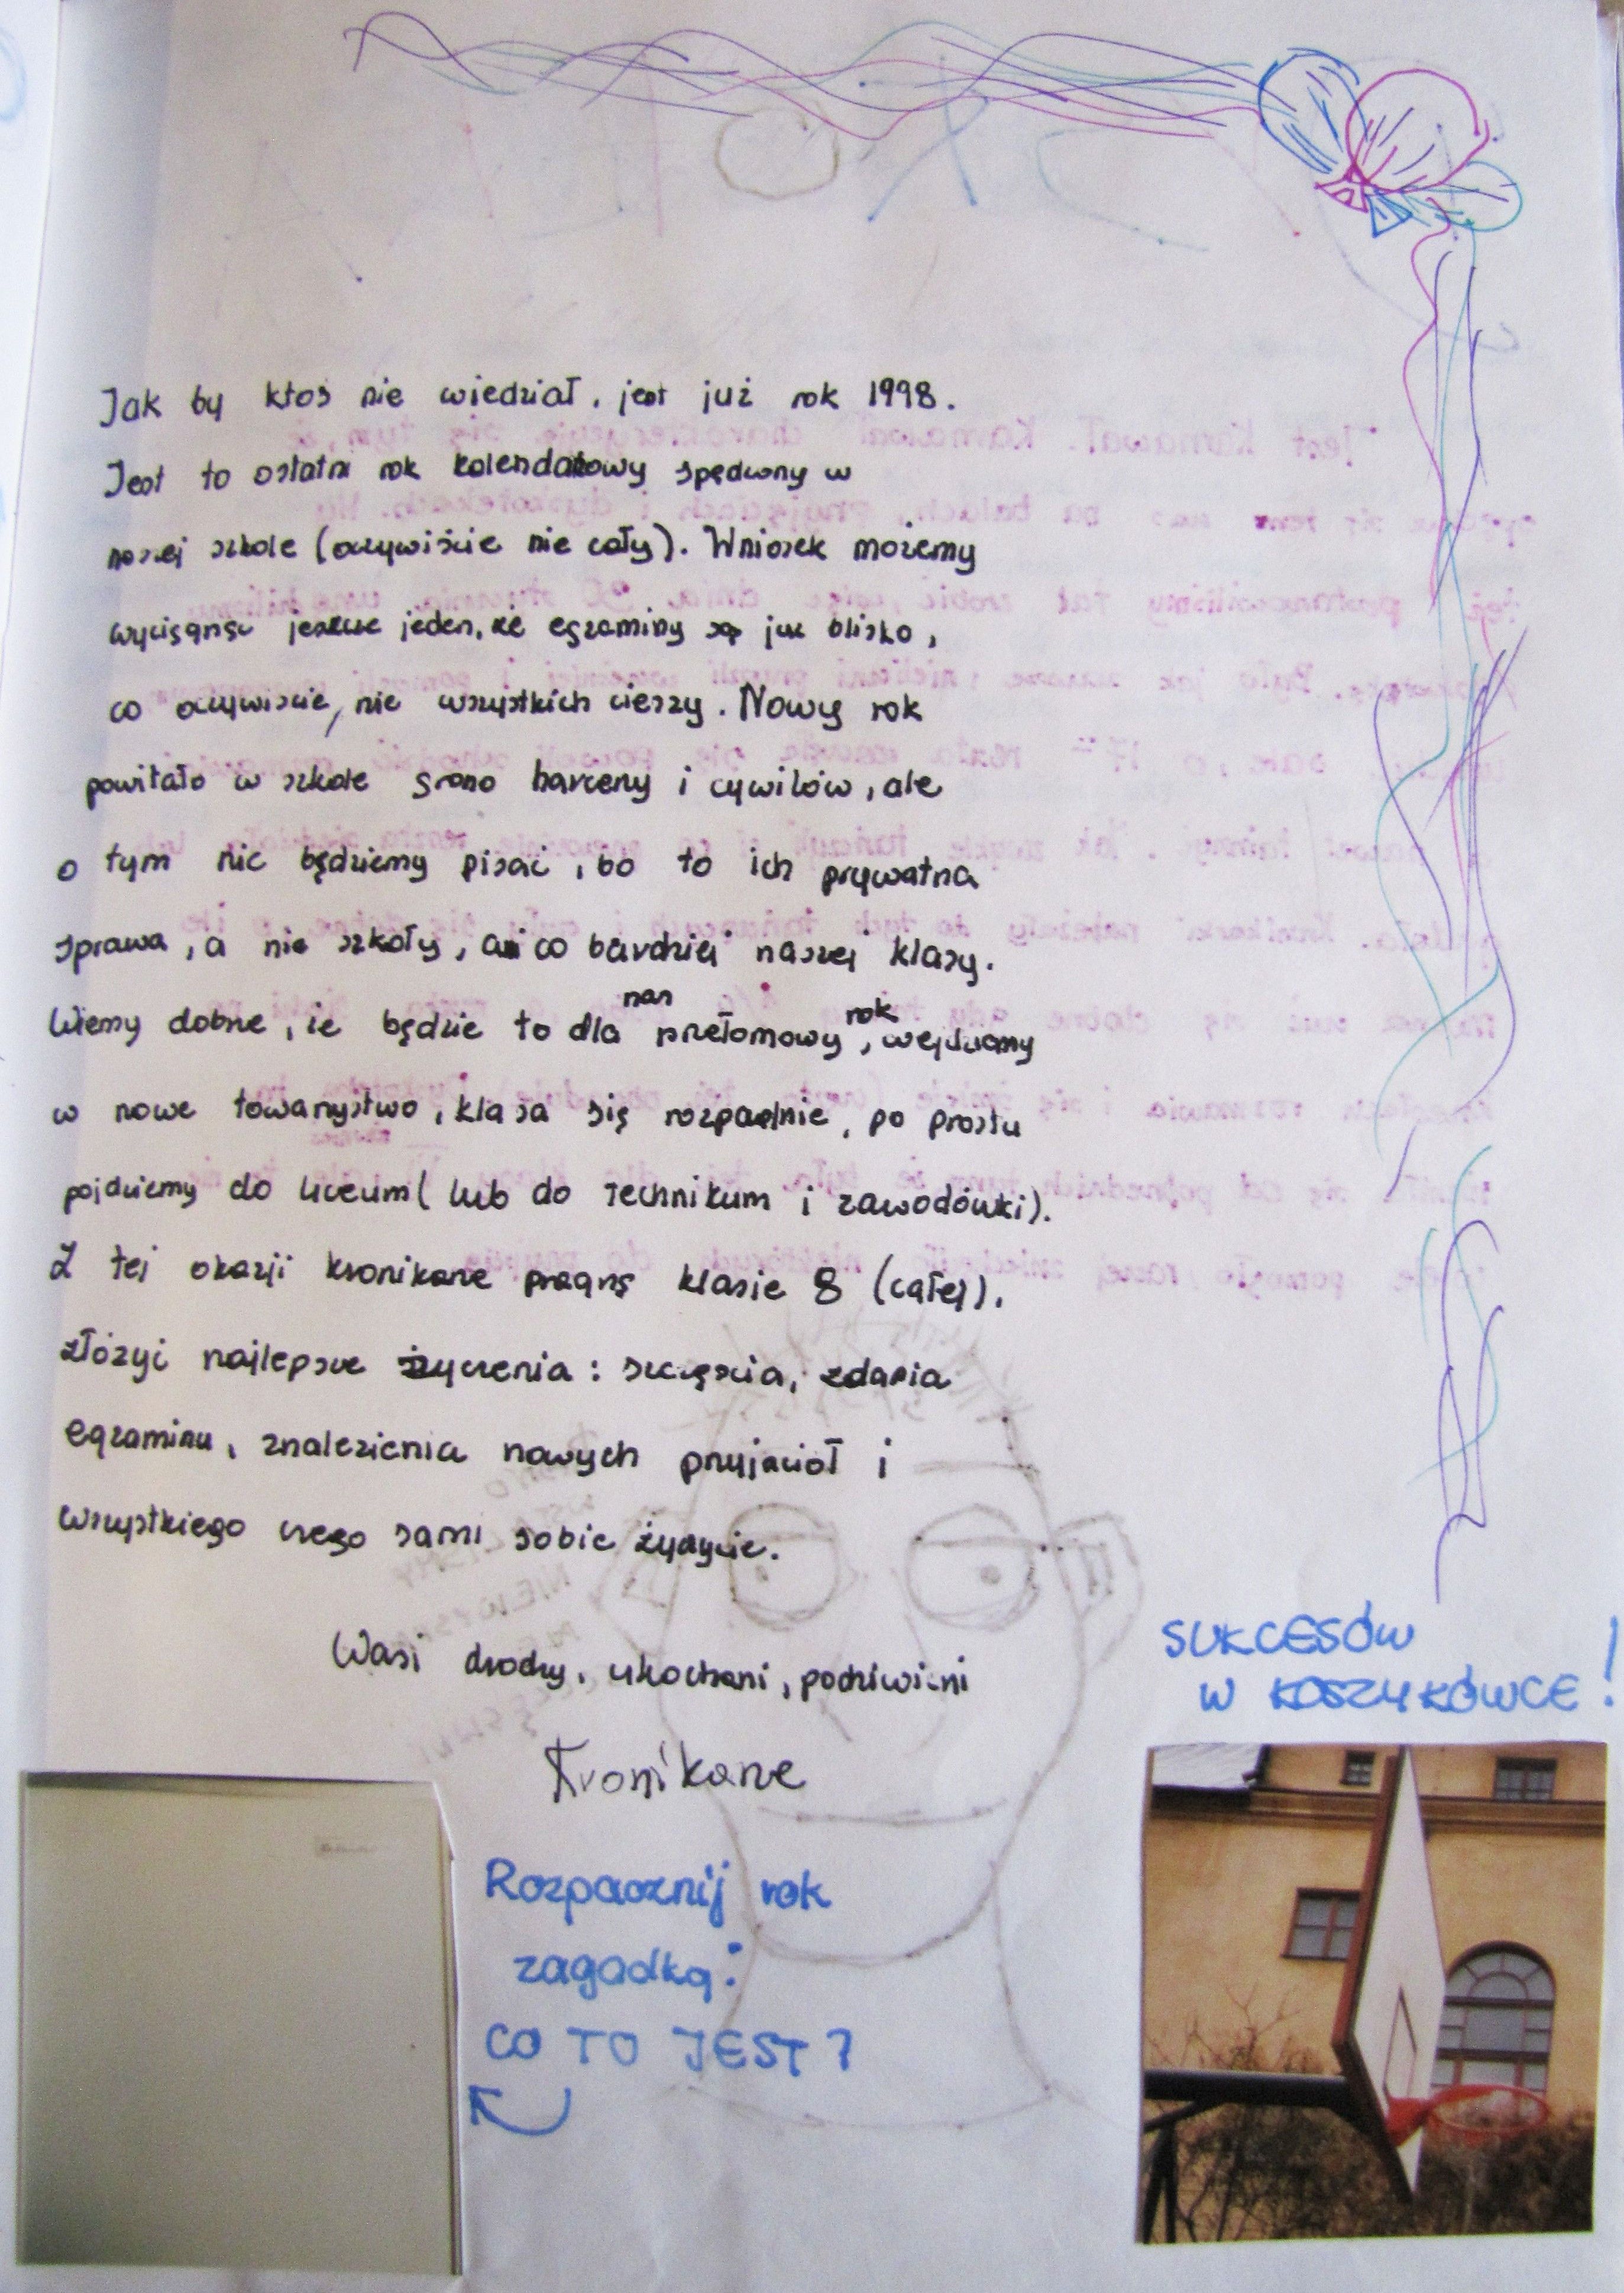 Jak by ktoś nie wiedział, jest już rok 1998.
Jest to ostatni rok kalendarzowy spędzony w
naszej szkole (oczywiście nie cały). Wniosek możemy
wyciągnąć jeszcze jeden, że egzaminy są już blisko,
co oczywiście, nie wszystkich cieszy. Nowy rok
powitało w szkole grono harcerzy i cywilów, ale
o tym nic będziemy pisać, bo to ich prywatna
sprawa, a nie szkoły, ani co bardziej naszej klasy.
Wiemy dobrze, że będzie to dla nas przełomowy rok, wejdziemy
w nowe towarzystwo, klasa się rozpadnie, po prostu
pójdziemy do liceum (lub do technikum i zawodówki).
Z tej okazji kronikarze pragną klasie 8 (całej),
złożyć najlepsze życzenia: szczęścia, zdania
egzaminu, znalezienia nowych przyjaciół i
wszystkiego czego sami sobie życzycie.
Wasi drodzy, ukochani, podziwiani
Kronikarze
SUKCESÓW
W KOSZYKÓWCE!
Rozpocznij rok
zagadką:
CO TO JEST?